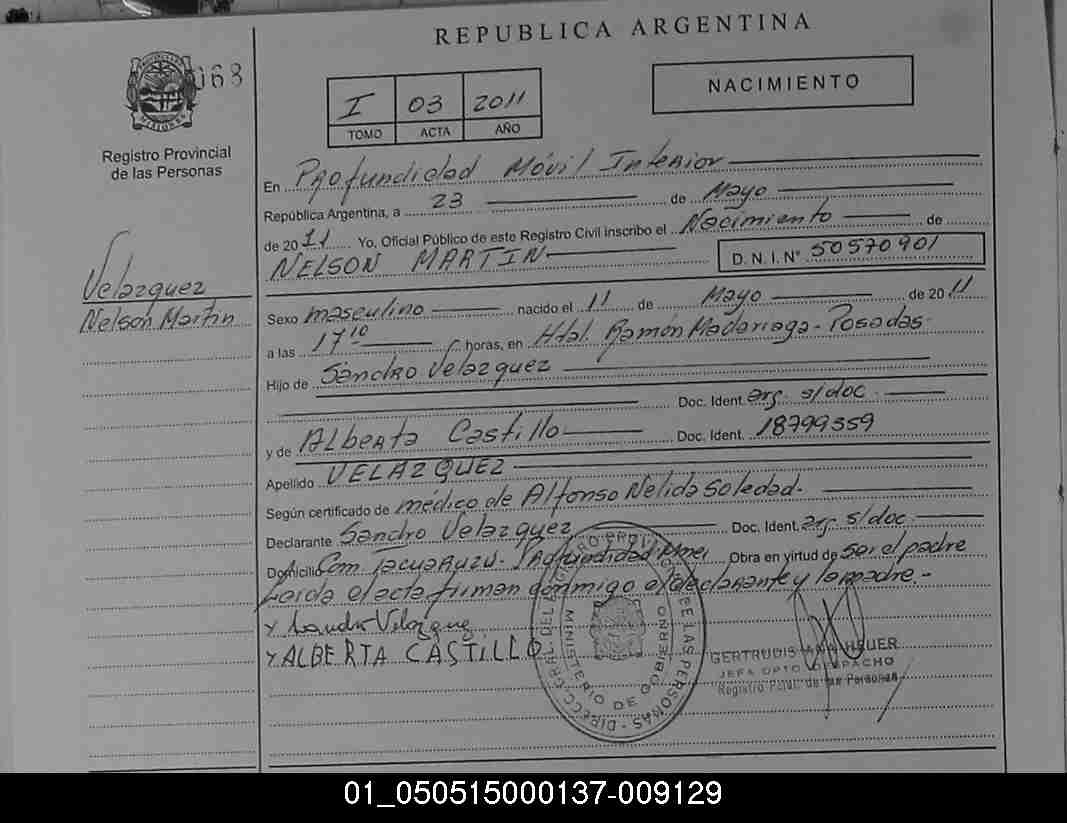 REPUBLICA ARGENTINA
068
I 03 2011
TOMO ACTA AÑO
NACIMIENTO
Registro Provincial
de las Personas
En Profundidad Móvil Interior
República Argentina, a 23 de Mayo
de 2011 Yo, Oficial Público de este Registro Civil inscribo el Nacimiento de
NELSON MARTIN D.N.I.Nº 50570901
Velazquez
Nelson Martin
Sexo masculino nacido el 11 de Mayo de 2011
a las 17 10 horas, en Htal. Ramón Madariaga - Posadas
Hijo de Sandro Velazquez
Doc. Ident. arg. s/doc
y de Alberta Castillo Doc. Ident. 18799359
Apellido VELAZQUEZ
Según certificado de médico de Alfonso Nelida Soledad.
Declarante Sandro Velazquez Doc. Ident. arg s/doc.
Domicilio Com Tacuaruzú - Profundidad Mnes Obra en virtud de Ser el padre
Leida el acta firman conmigo el declarante y la madre.-
x Sandro Velazquez
x ALBERTA CASTILLO
DIRECC. GRAL. DEL REGISTRO PROVINCIAL DE LAS PERSONAS
MINISTERIO DE GOBIERNO
GERTRUDIS ANA HEUER
JEFA DPTO DESPACHO
Registro Pcial. de las Personas
01_050515000137-009129